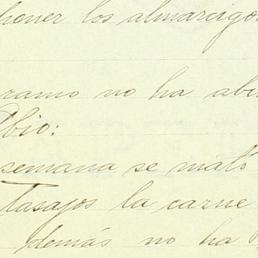 poner los almacigos
ramo no ha abi
Obio:
semana se mató
Tasajos la carne
demás no ha